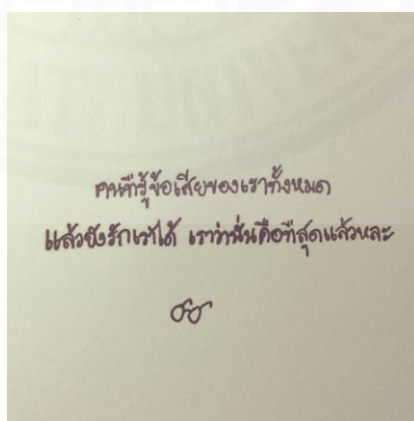 คนที่รู้ข้อเสียของเราทั้งหมด
แล้วยังรักเราได้ เราว่านั่นคือที่สุดแล้วหละ